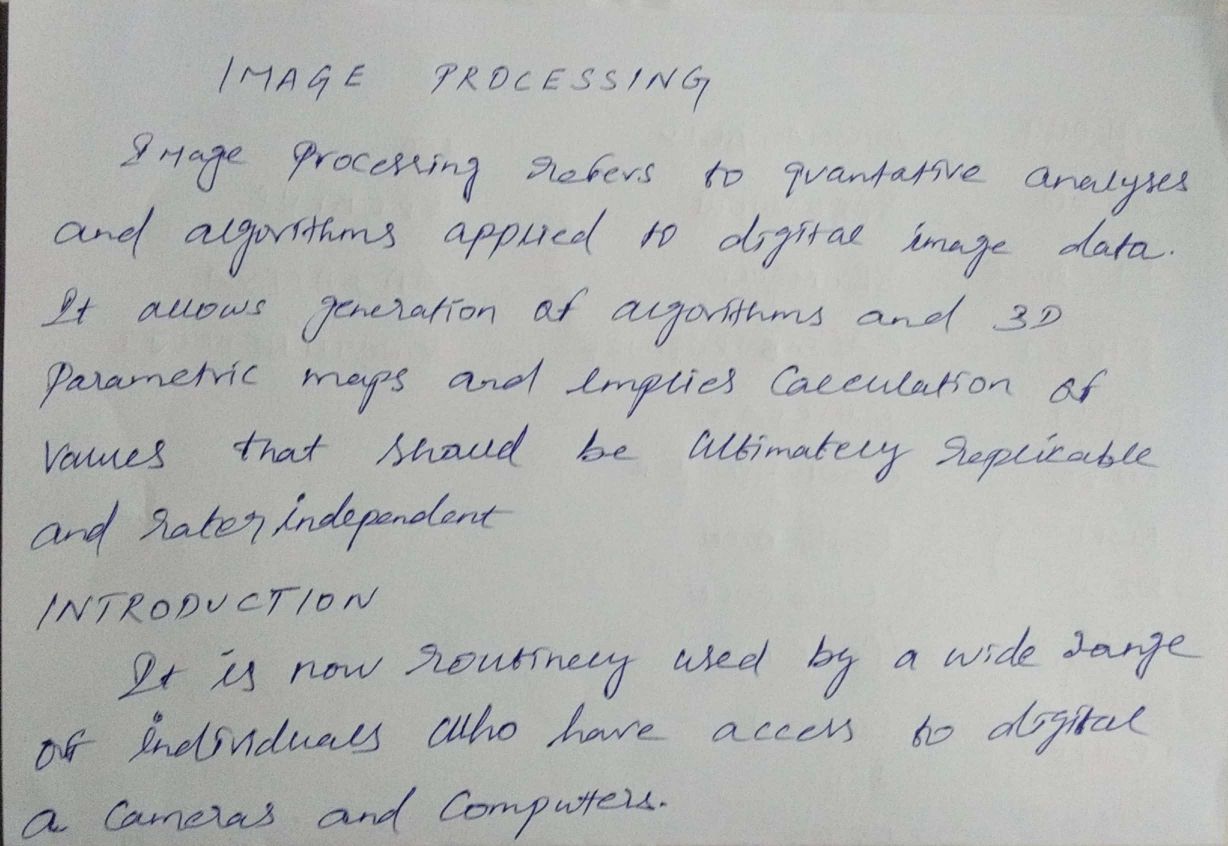 IMAGE PROCESSING
Image Processing refers to quantative analyses
and algorithms applied to digital image data.
It allows generation of algorithms and 3D
Parametric maps and implies Calculation of
Values that should be ultimately replicable
and rater independent
INTRODUCTION
It is now routinely used by a wide range
of individuals who have access to digital
a Cameras and Computers.